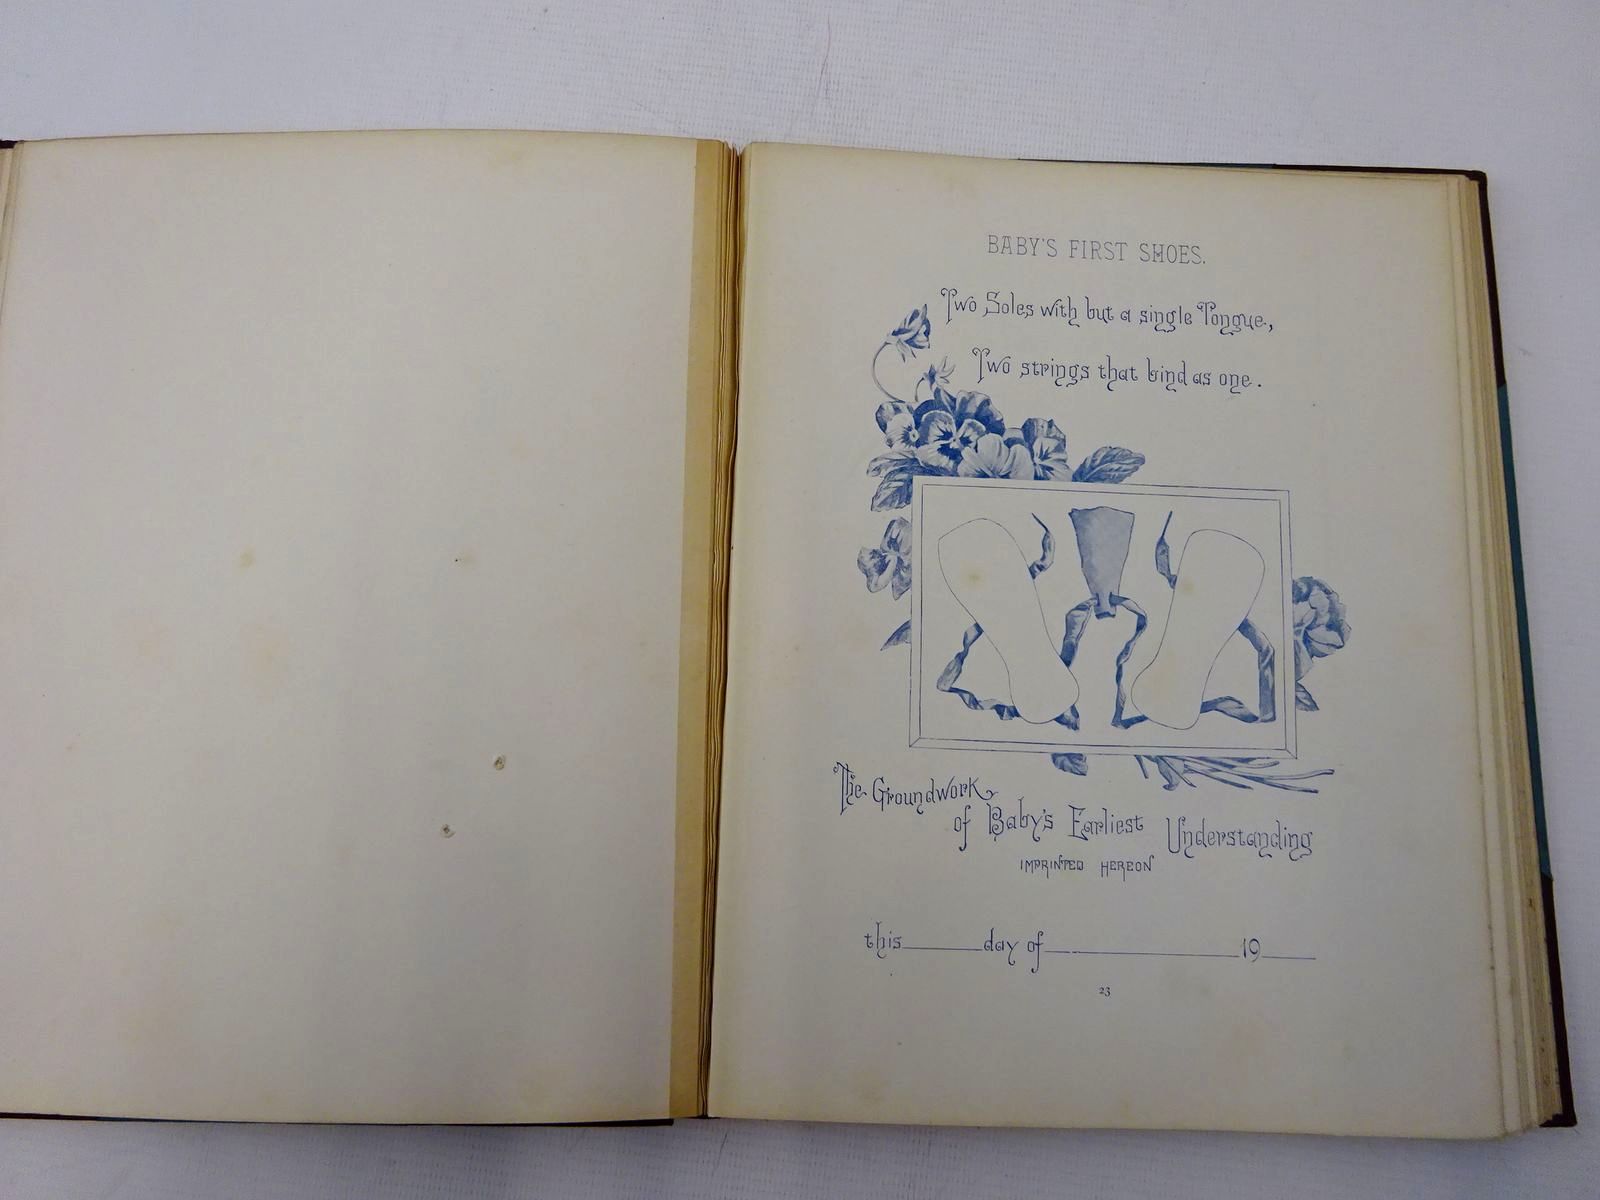 BABY'S FIRST SHOES.
Two Soles with but a single Tongue,
Two strings that bind as one.
The Groundwork
of Baby's Earliest Understanding
IMPRINTED HEREON
this day of 19
23